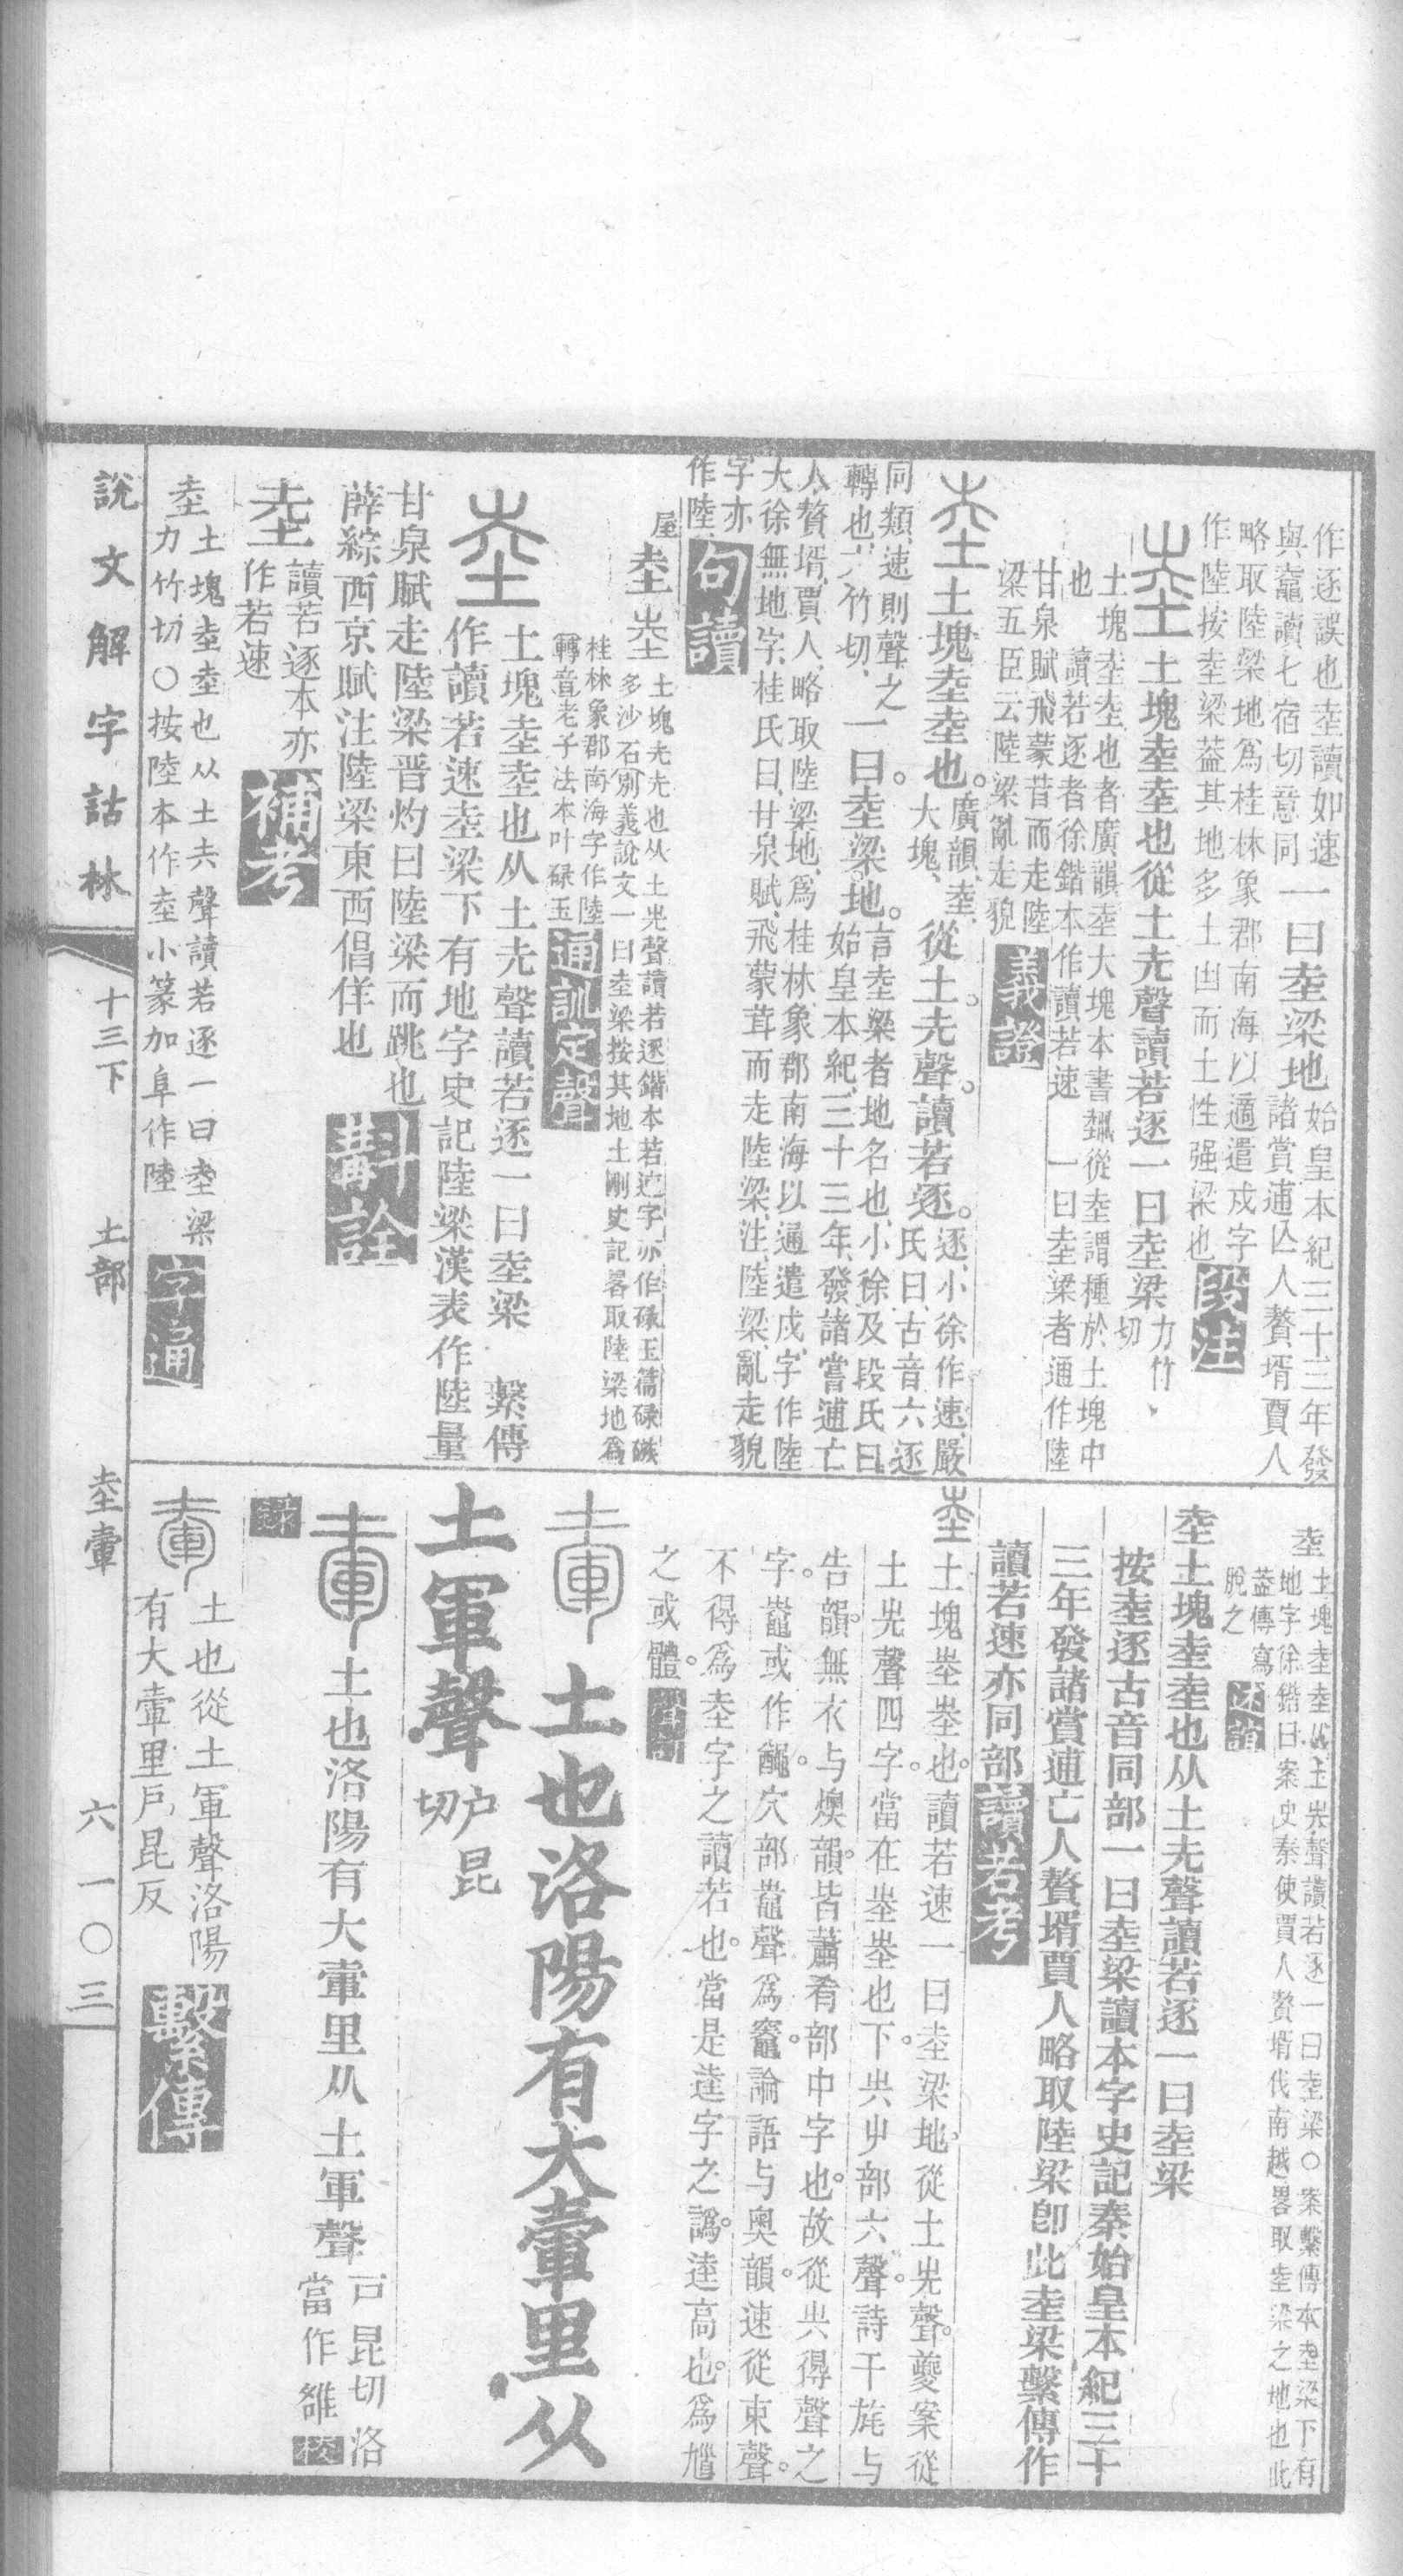 作逐誤也坴讀如速一曰坴梁地始皇本紀三十三年發
與鼀讀七宿切意同諸賞逋亡人贅壻賈人
略取陸梁地爲桂林象郡南海以適遣戍字
作陸按坴梁葢其地多土凷而土性强梁也段注
坴土塊坴坴也從土圥聲讀若逐一曰坴梁力竹切
土塊坴坴也者廣韻坴大塊本書㼖從坴謂種於土塊中
也讀若逐者徐鍇本作讀若速一曰坴梁者通作陸
甘泉賦飛蒙茸而走陸
梁五臣云陸梁亂走貌義證
坴土塊坴坴也廣韻坴大塊從土圥聲讀若逐逐小徐作速嚴氏曰古音六逐
同類速則聲之
轉也六竹切一曰坴梁地言坴梁者地名也小徐及段氏曰始皇本紀三十三年發諸嘗逋亡
人贅壻賈人略取陸梁地爲桂林象郡南海以適遣戍字作陸
大徐無地字桂氏曰甘泉賦飛蒙茸而走陸梁注陸梁亂走貌
字亦
作陸句讀
屋坴土塊圥圥也从土圥聲讀若逐鍇本若速字亦作碌玉篇碌磟
多沙石別義說文一曰坴梁按其地土剛史記畧取陸梁地爲
桂林象郡南海字作陸
轉音老子法本叶碌玉通訓定聲
坴土塊坴坴也从土圥聲讀若逐一曰坴梁 繫傳
作讀若速坴梁下有地字史記陸梁漢表作陸量
甘泉賦走陸梁晋灼曰陸梁而跳也
薛綜西京賦注陸梁東西倡佯也斠詮
坴讀若逐本亦
作若速補考
坴土塊坴坴也从土圥聲讀若逐一曰坴梁
力竹切○按陸本作坴小篆加阜作陸字通
坴土塊坴坴从土圥聲讀若逐一曰坴梁○案繫傳本坴梁下有
地字徐鍇曰案史秦使賈人贅壻伐南越畧取坴梁之地也此
葢傳寫
脫之
坴土塊坴坴也从土圥聲讀若逐一曰坴梁
按坴逐古音同部一曰坴梁讀本字史記秦始皇本紀三十
三年發諸賞逋亡人贅壻賈人略取陸梁卽此坴梁繫傳作
讀若速亦同部讀若考
坴土塊坴坴也讀若速一曰坴梁地從土圥聲夔案從
土圥聲四字當在坴坴也下圥屮部六聲詩干旄与
告韻無衣与燠韻皆蕭肴部中字也故從圥得聲之
字鼀或作䵸穴部鼀聲爲竈論語与奧韻速從束聲
不得爲坴字之讀若也當是逵字之譌逵高也爲馗
之或體
土也洛陽有大𡑮里从
土軍聲户昆切
土也洛陽有大𡑮里从土軍聲戸昆切洛
當作雒校
錄
土也從土軍聲洛陽
有大𡑮里戶昆反繫傳
說文解字詁林 十三下 土部 坴𡑮 六一〇三